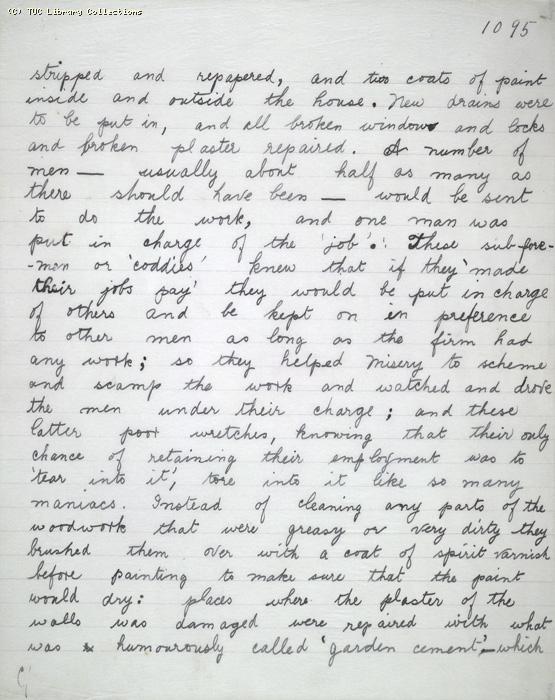 (C) TUC Library Collections
1095
stripped and repapered, and two coats of paint
inside and outside the house. New drains were
to be put in, and all broken windows and locks
and broken plaster repaired. A number of
men — usually about half as many as
there should have been — would be sent
to do the work, and one man was
put in charge of the 'job'. These sub-fore-
-men or 'coddies' knew that if they 'made
their jobs pay' they would be put in charge
of others and be kept on in preference
to other men as long as the firm had
any work; so they helped Misery to scheme
and scamp the work and watched and drove
the men under their charge; and these
latter poor wretches, knowing that their only
chance of retaining their employment was to
'tear into it', tore into it like so many
maniacs. Instead of cleaning any parts of the
woodwork that were greasy or very dirty they
brushed them over with a coat of spirit varnish
before painting to make sure that the paint
would dry: places where the plaster of the
walls was damaged were repaired with what
was humourously called 'garden cement'—which